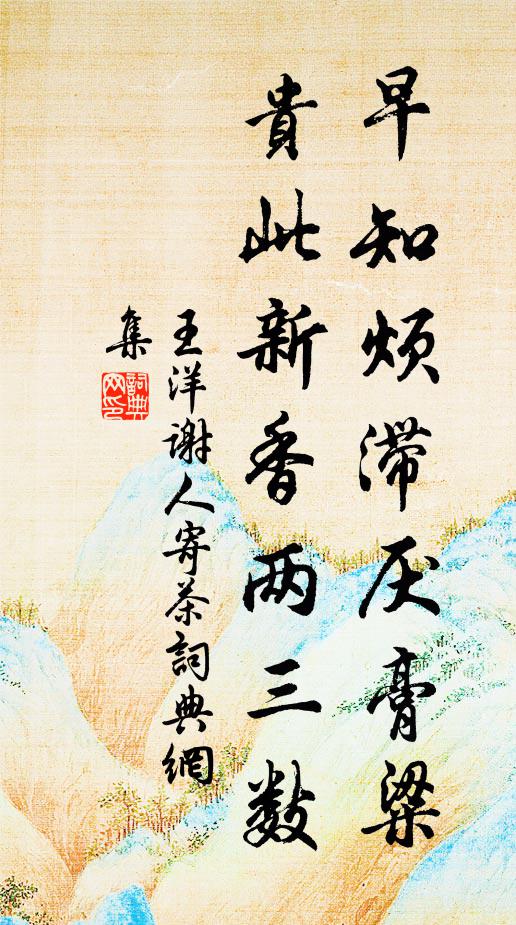 早知烦滞厌膏粱
貴此新香两三数
王洋谢人寄茶詞典網
集
詞典网印